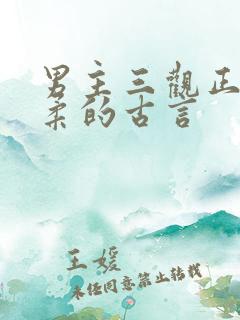 男主三觀正
柔的古言
王媛
未经同意禁止转载